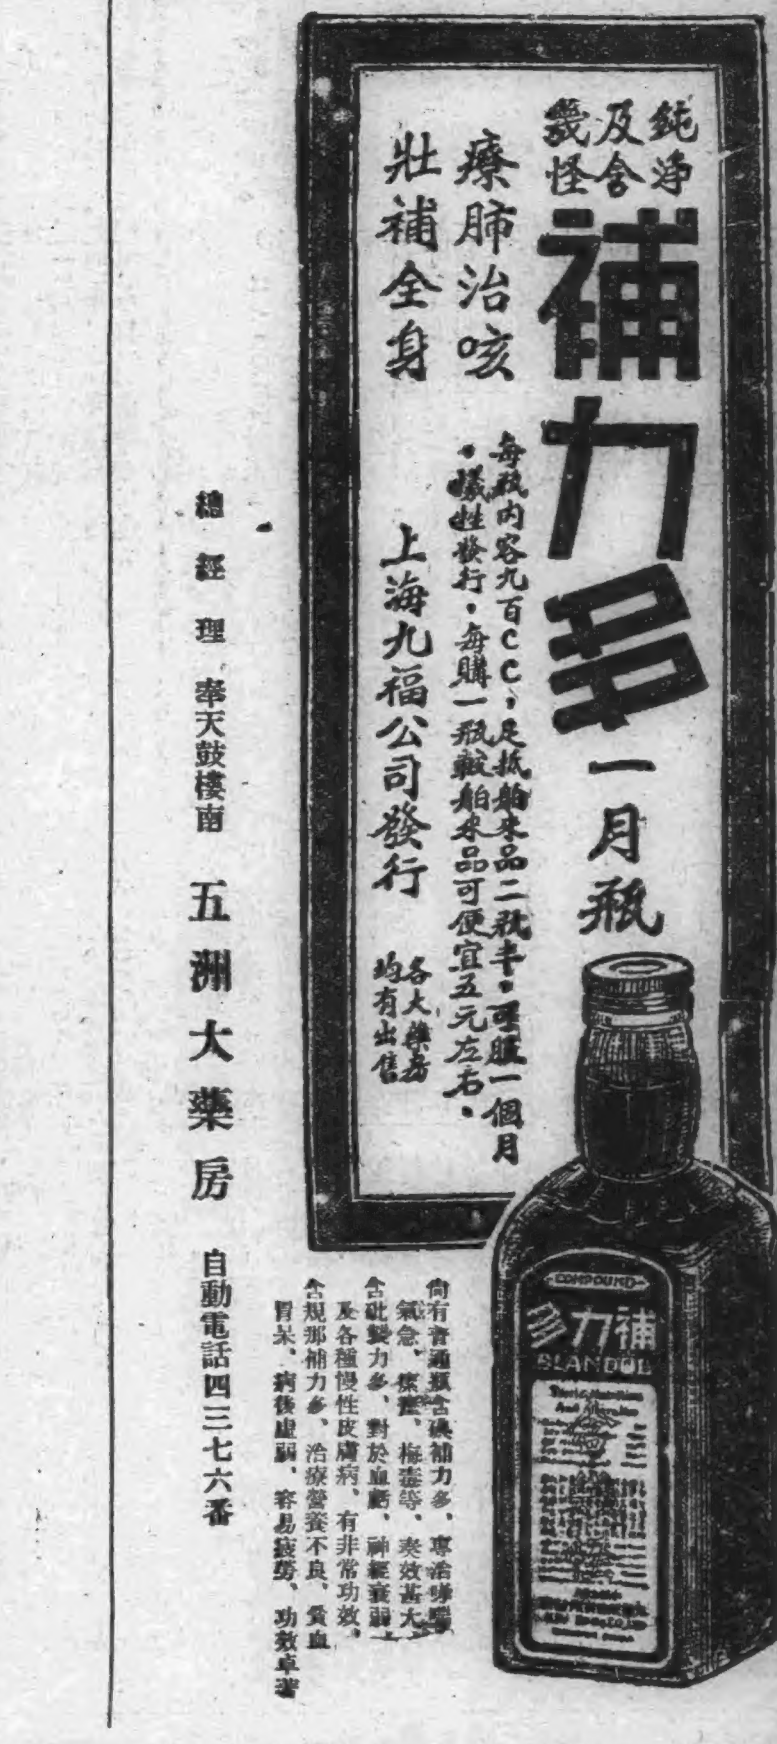 純淨
及含
幾怪
補力多一月瓶
療肺治咳
壯補全身
每瓶內容九百CC,足抵舶來品二瓶半。可服一個月
。犧牲發行。每購一瓶較舶來品可便宜五元左右。
上海九福公司發行
各大藥房
均有出售
COMPOUND
補力多
BLANDOL
尙有普通瓶含碘補力多、專治哮喘
氣急、瘰癧、梅毒等、奏效甚大、
含砒製力多、對於血虧、神經衰弱、
及各種慢性皮膚病、有非常功效、
含規那補力多、治療營養不良、貧血
胃呆、病後虛弱、容易疲勞、功效卓著
總經理 奉天鼓樓南 五洲大藥房 自動電話四三七六番